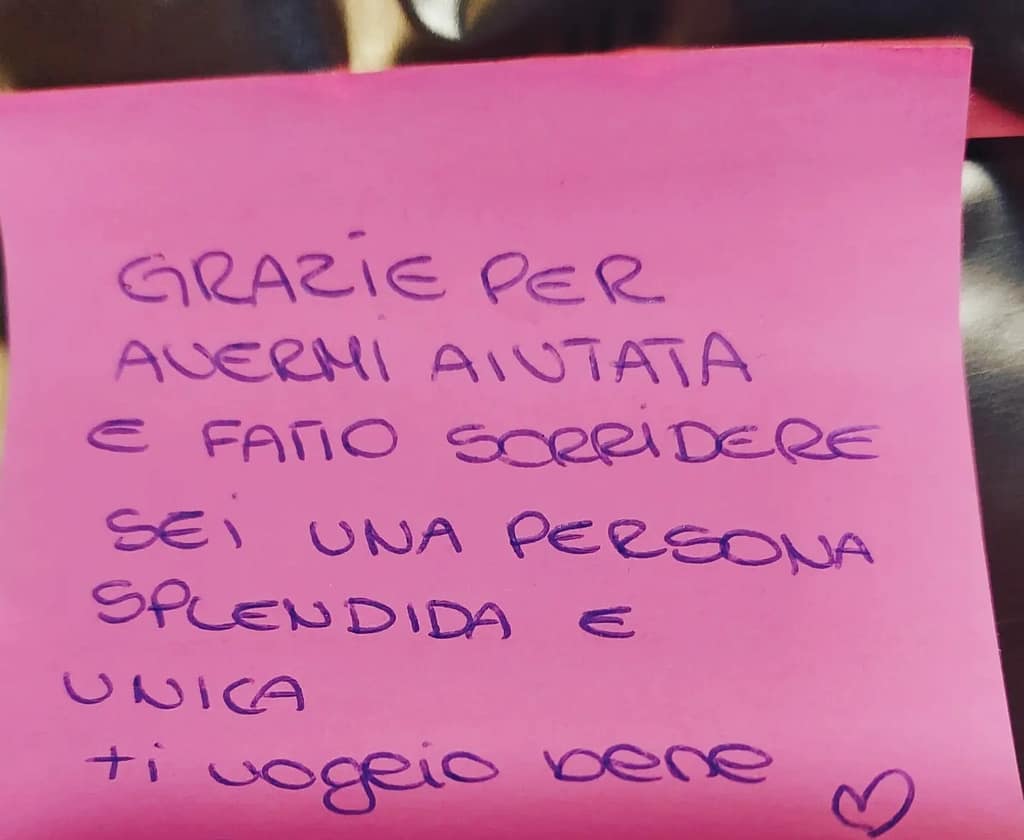 GRAZIE PER
AVERMI AIUTATA
E FATTO SORRIDERE
SEI UNA PERSONA
SPLENDIDA E
UNICA
ti voglio bene